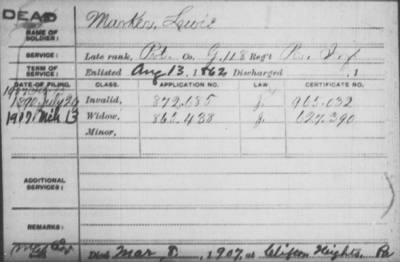 DEAD
NAME OF SOLDIER: Marker, Lewis
SERVICE: Late rank, Co. G, 118 Reg't Inf
TERM OF SERVICE: Enlisted Aug 13, 1862 Discharged , 1
DATE OF FILING. CLASS. APPLICATION NO. LAW. CERTIFICATE NO.
1890 July 26 Invalid, 872.685
1907 Mch 13 Widow, 627.390
Minor,
ADDITIONAL SERVICES:
REMARKS:
Died Mar 8, 1907, at Clifton Heights, Pa